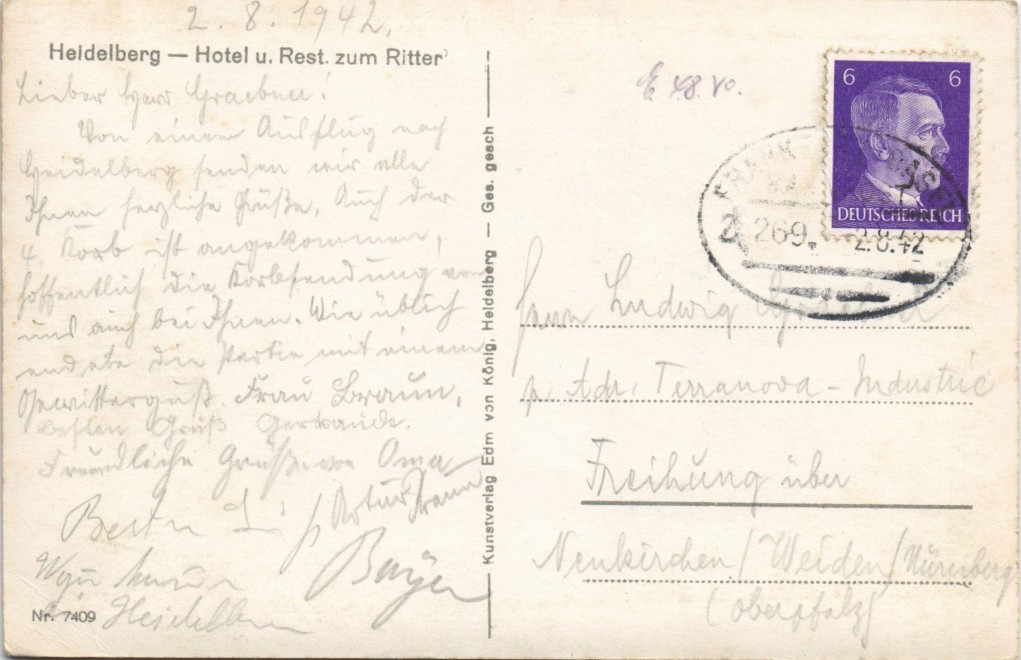 2. 8. 1942.
Heidelberg — Hotel u. Rest. zum Ritter
Lieber Herr Graebner!
Von einem Ausflug nach
Heidelberg senden wir alle
Ihnen herzliche Grüße. Auch der
4. Korb ist angekommen,
hoffentlich die Korbsendung von
uns auch bei Ihnen. Wie üblich
endete die Partie mit einem
Gewitterguß. Frau Braun,
besten Gruß
Freundliche Grüße von Oma
Artur
Heidelberg
Nr. 7409
Kunstverlag Edm von König, Heidelberg — Ges. gesch
6 6
DEUTSCHES REICH
2 269 2.8.42
Herrn Ludwig
p. Adr. Terranova-Industrie
Freihung über
Neukirchen/Weiden/Nürnberg
(Oberpfalz)